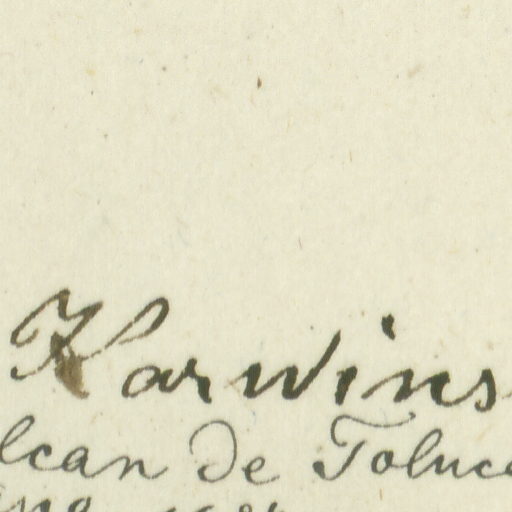 Karwins
lcan de Toluca